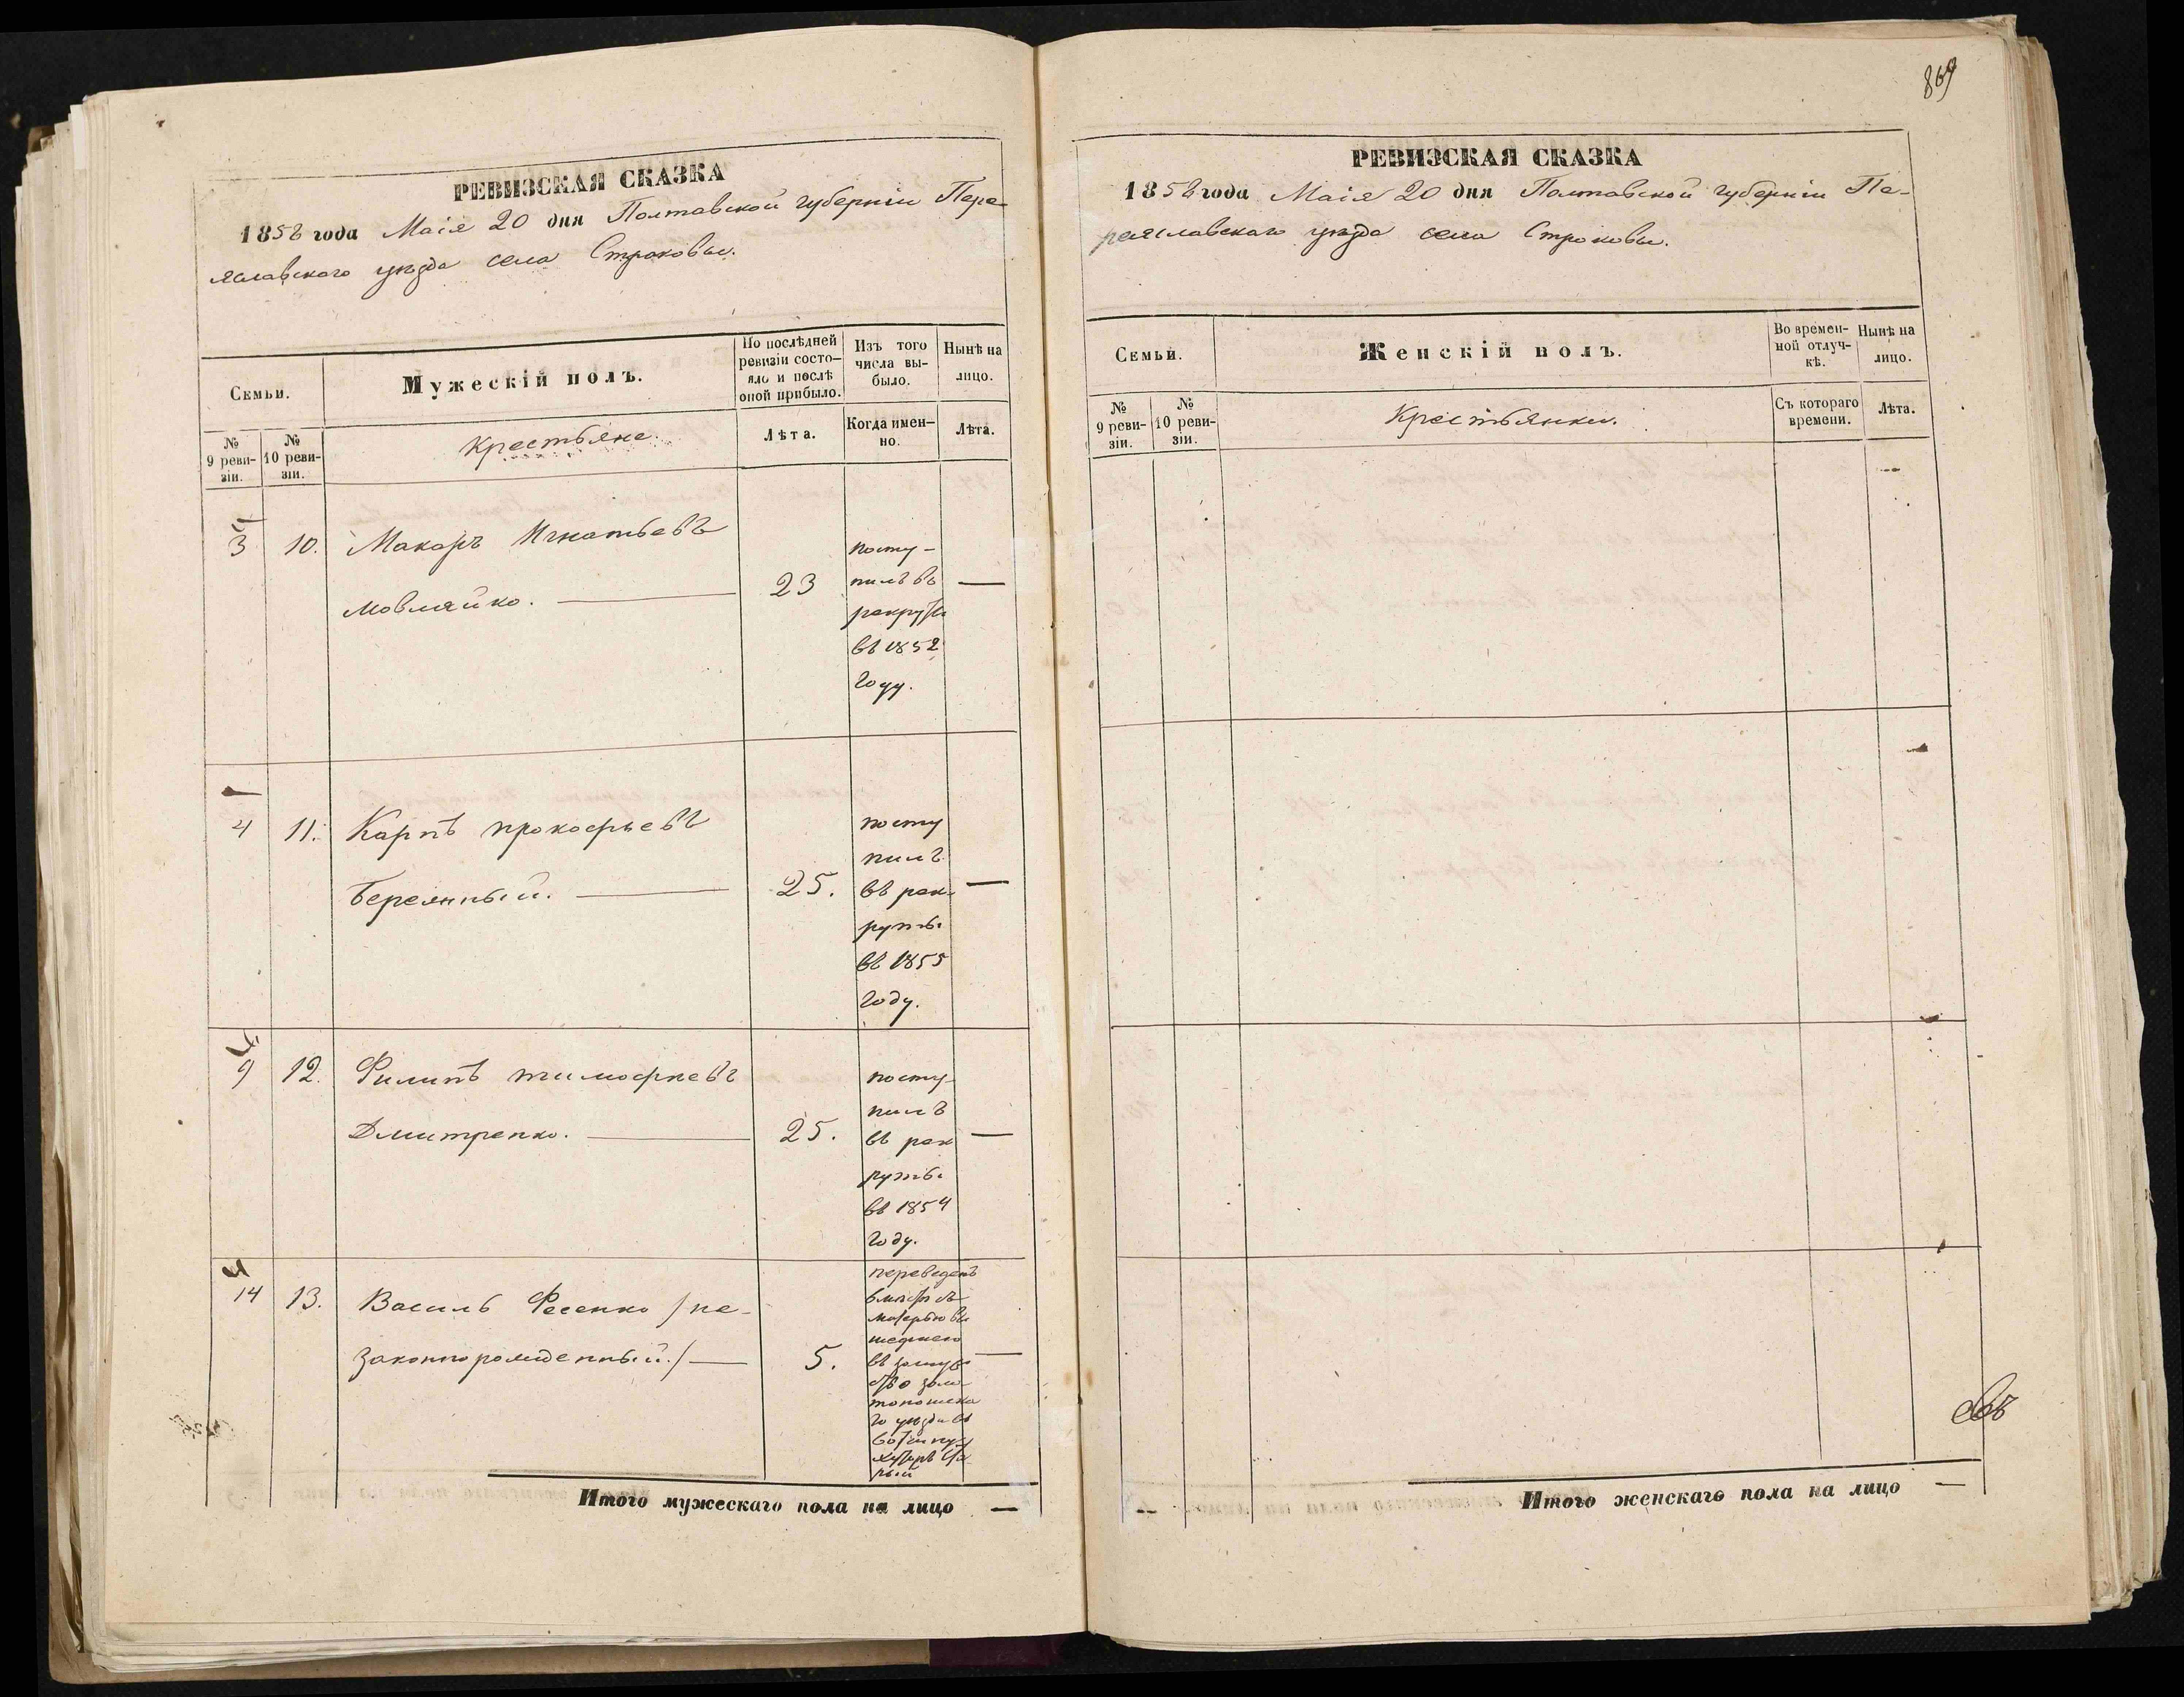 869
РЕВИЗСКАЯ СКАЗКА
1858 года Маія 20 дня Полтавской губерніи Пере-
яславского уѣзда села Строковы.
Семьи.
Мужескій полъ.
По послѣдней
ревизіи состо-
яло и послѣ
оной прибыло.
Изъ того
числа вы-
было.
Нынѣ на
лицо.
№
9 реви-
зіи.
№
10 реви-
зіи.
Крестьяне.
Лѣта.
Когда имен-
но.
Лѣта.
3 10. Макаръ Игнатьевъ
Мовляйко. — 23 —
посту-
пилъ въ
рекруты
въ 1852
году.
4 11. Карпъ Прокофьевъ
Беремный. — 25. —
посту
пилъ
въ рек-
руты
въ 1855
году.
9 12. Филипъ Тимофеевъ
Дмитренко. — 25. —
посту-
пилъ
въ рек
руты
въ 1854
году.
14 13. Василь Фесенко /не-
законнорожденный./ — 5. —
переведенъ
вместѣ съ
матерью вы
шедшею
въ замуже
ство золо
тоношска
го уѣзда въ
Итого мужескаго пола на лицо —
РЕВИЗСКАЯ СКАЗКА
1858 года Маія 20 дня Полтавской губерніи Пе-
реяславскаго уѣзда села Строковы.
Семьи.
Женскій полъ.
Во времен-
ной отлуч-
кѣ.
Нынѣ на
лицо.
№
9 реви-
зіи.
№
10 реви-
зіи.
Крестьянки.
Съ котораго
времени.
Лѣта.
Итого женскаго пола на лицо —